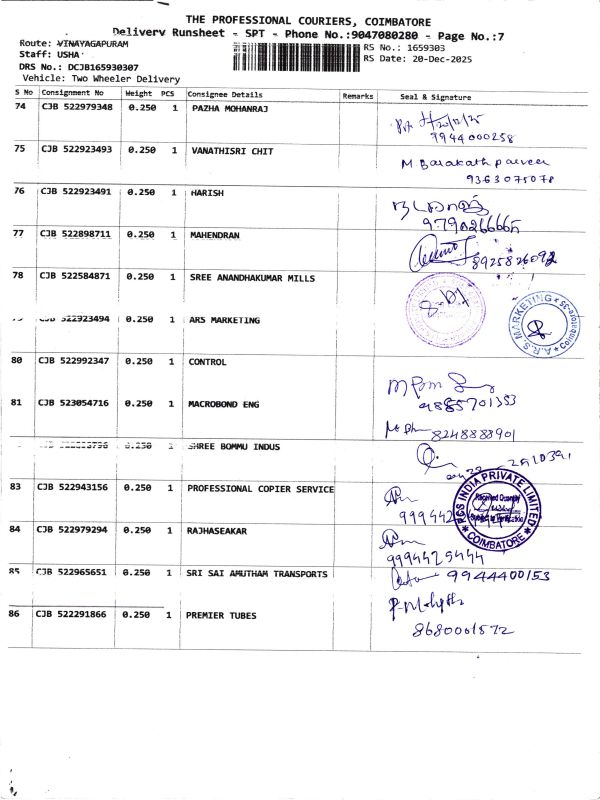 THE PROFESSIONAL COURIERS, COIMBATORE
Delivery Runsheet - SPT - Phone No.:9047080280 - Page No.:7
Route: VINAYAGAPURAM
Staff: USHA
DRS No.: DCJB165930307
Vehicle: Two Wheeler Delivery
RS No.: 1659303
RS Date: 20-Dec-2025
S No Consignment No Weight PCS Consignee Details Remarks Seal & Signature
74 CJB 522979348 0.250 1 PAZHA MOHANRAJ
20/12/25
9944000258
75 CJB 522923493 0.250 1 VANATHISRI CHIT
M. Barakath parveen
9363075078
76 CJB 522923491 0.250 1 HARISH
9790266665
77 CJB 522898711 0.250 1 MAHENDRAN
8925826092
78 CJB 522584871 0.250 1 SREE ANANDHAKUMAR MILLS
79 CJB 522923494 0.250 1 ARS MARKETING
A.R.S. MARKETING * Coimbatore-35 *
80 CJB 522992347 0.250 1 CONTROL
81 CJB 523054716 0.250 1 MACROBOND ENG
8248888901
0.250 1 SHREE BOMMU INDUS
83 CJB 522943156 0.250 1 PROFESSIONAL COPIER SERVICE
RGS INDIA PRIVATE LIMITED
* COIMBATORE *
84 CJB 522979294 0.250 1 RAJHASEAKAR
9994425444
85 CJB 522965651 0.250 1 SRI SAI AMUTHAM TRANSPORTS
9944400153
86 CJB 522291866 0.250 1 PREMIER TUBES
8680061572